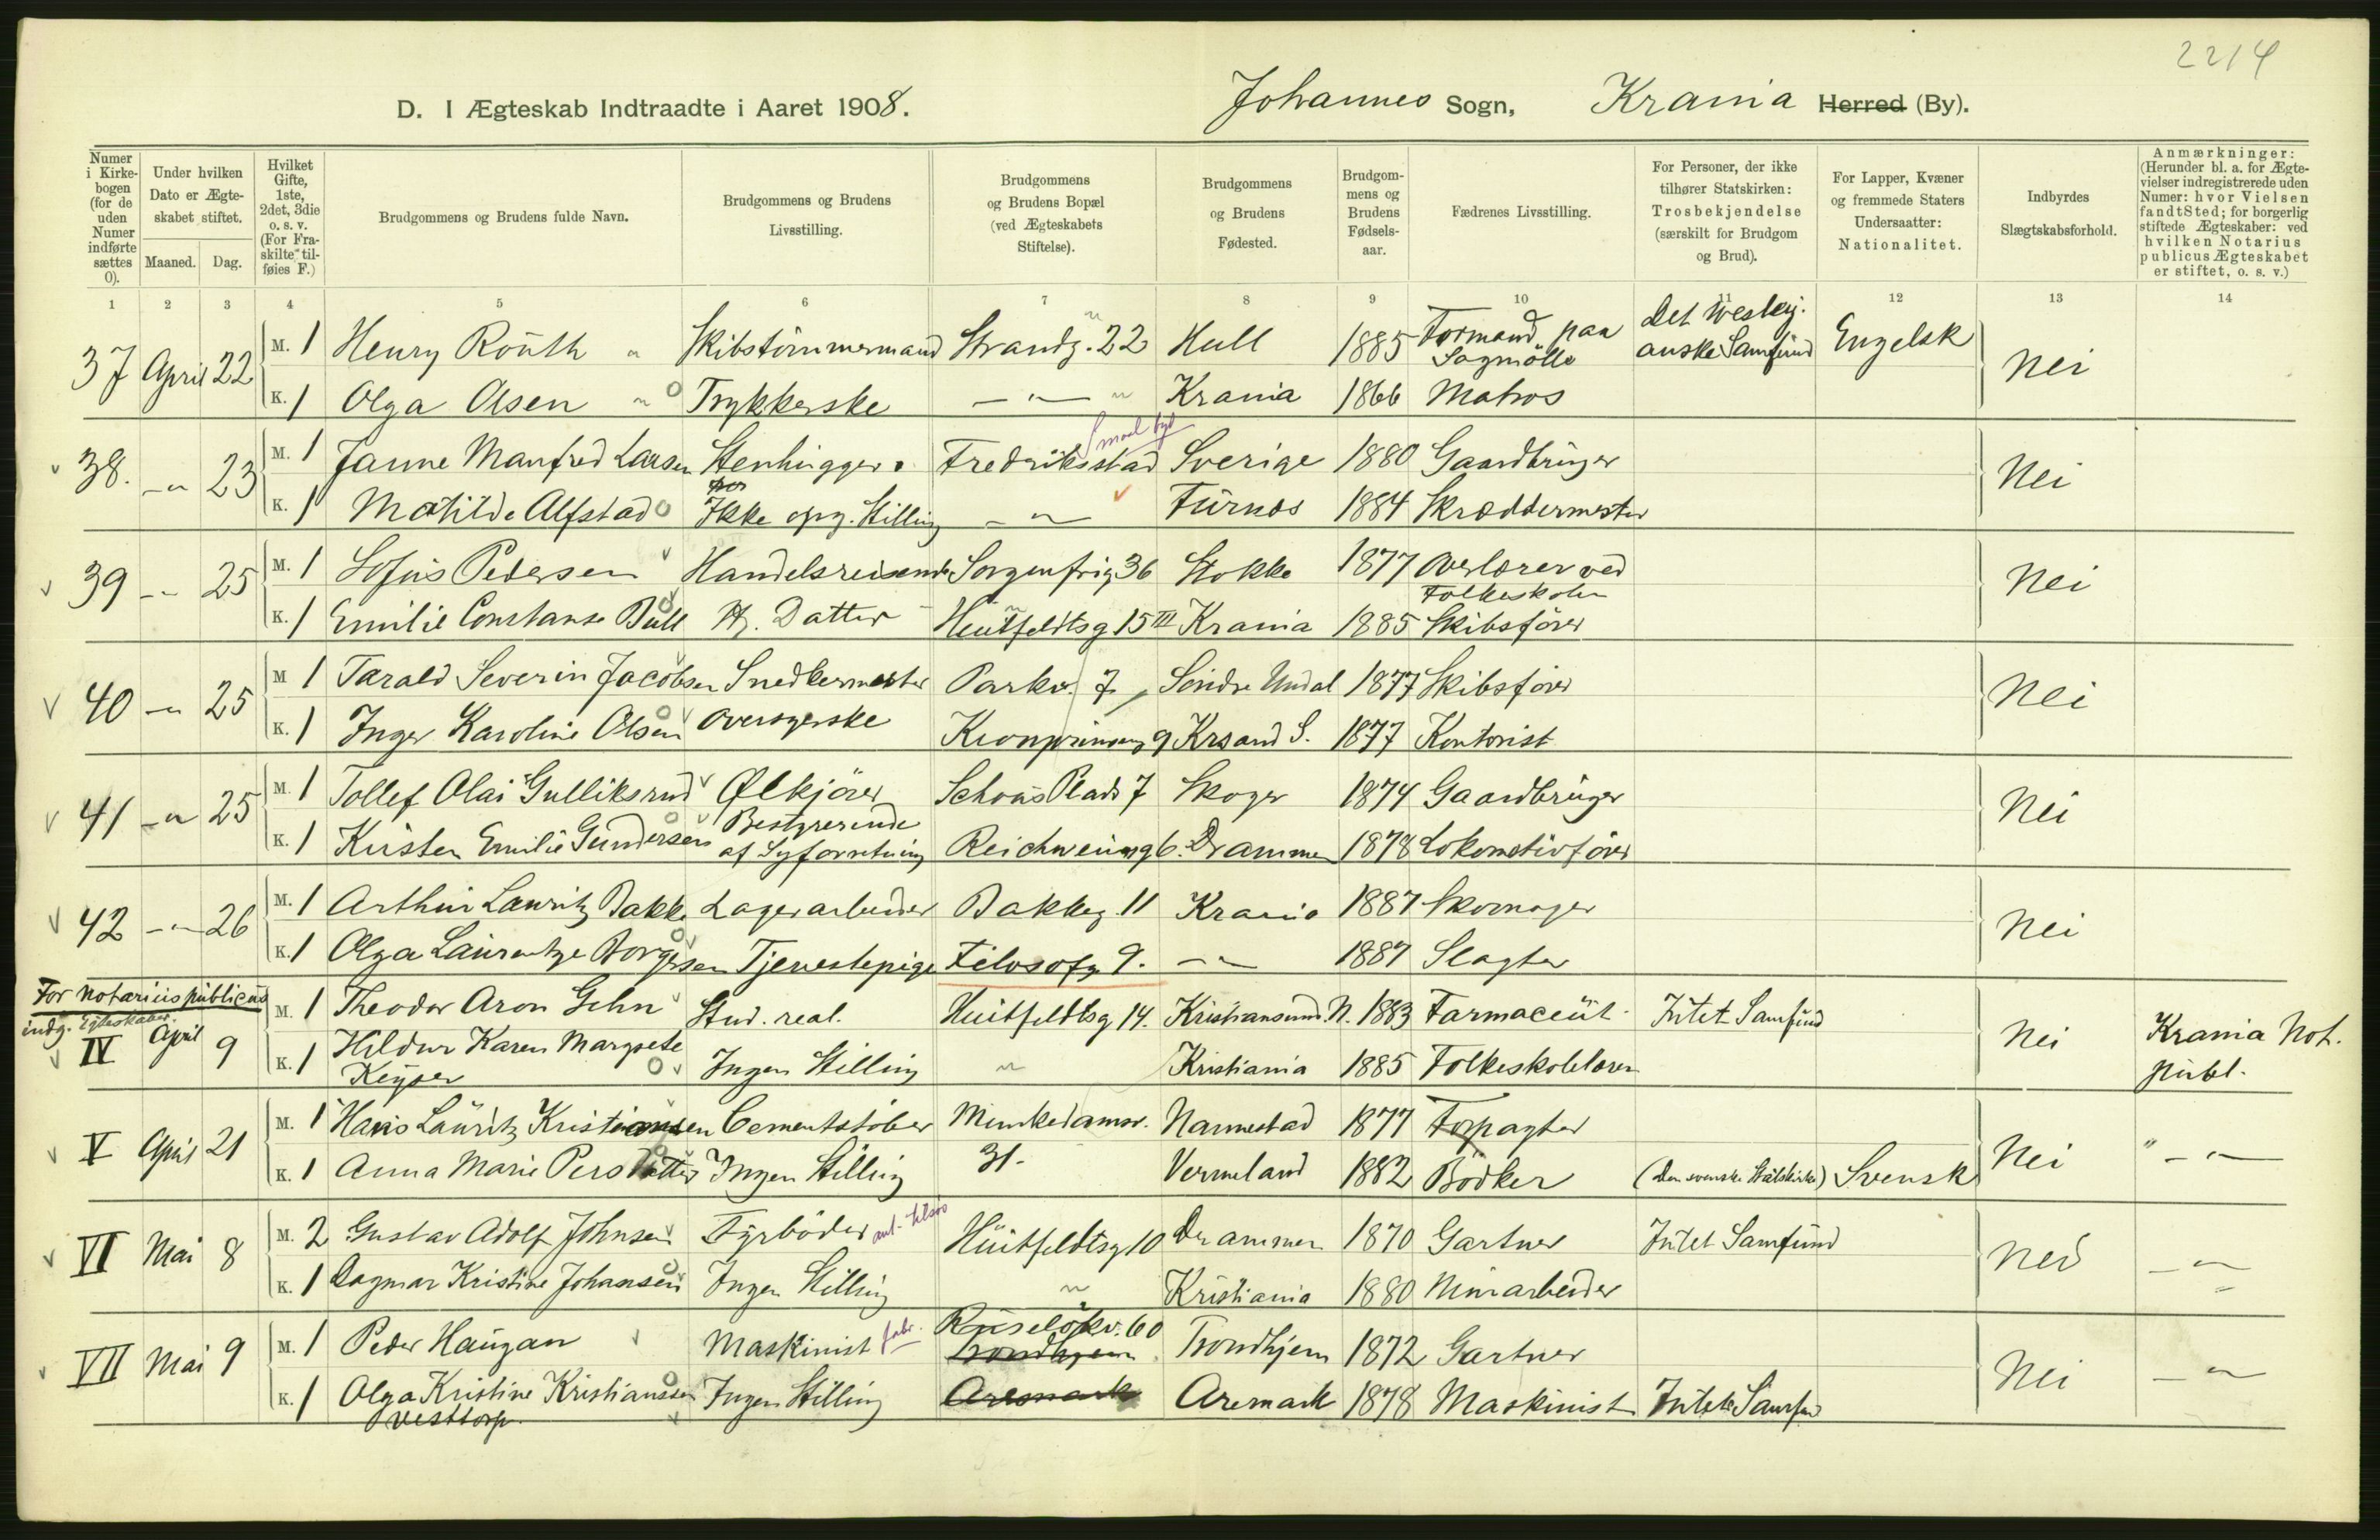 2214
D. I Ægteskab Indtraadte i Aaret 1908. Johannes Sogn, Krania Herred (By).
Numer i Kirkebogen (for de uden Numer indførte sættes 0).
Under hvilken Dato er Ægteskabet stiftet.
Maaned. Dag.
Hvilket Gifte, 1ste, 2det, 3die o. s. v. (For Fraskilte tilføies F.)
Brudgommens og Brudens fulde Navn.
Brudgommens og Brudens Livsstilling.
Brudgommens og Brudens Bopæl (ved Ægteskabets Stiftelse).
Brudgommens og Brudens Fødested.
Brudgommens og Brudens Fødselsaar.
Fædrenes Livsstilling.
For Personer, der ikke tilhører Statskirken: Trosbekjendelse (særskilt for Brudgom og Brud).
For Lapper, Kvæner og fremmede Staters Undersaatter: Nationalitet.
Indbyrdes Slægtskabsforhold.
Anmærkninger: (Herunder bl. a. for Ægtevielser indregistrerede uden Numer: hvor Vielsen fandt Sted; for borgerlig stiftede Ægteskaber: ved hvilken Notarius publicus Ægteskabet er stiftet, o. s. v.)
1 2 3 4 5 6 7 8 9 10 11 12 13 14
37 April 22 M. 1 Henry Routh Skibstømmermand Strandg. 22 Hull 1885 Formand paa Sagmølle Det Wesleyanske Samfund Engelsk Nei
K. 1 Olga Olsen Trykkerske — " — Krania 1866 Matros
Smaal byd
38. — " 23 M. 1 Janne Manfred Larsen Stenhugger Fredriksstad Sverige 1880 Gaardbruger Nei
K. 1 Matilde Alfstad Ikke opg. Stilling — " — Furnes 1884 Skræddermester
39 — " 25 M. 1 Sofus Pedersen Handelsreisende Sorgenfrig 36 Stokke 1877 Overlærer ved Folkeskolen Nei
K. 1 Emilie Constanse Bull Hj. Datter Huitfeldtsg 15 III Krania 1885 Skibsfører
40 — " 25 M 1 Tarald Severin Jacobsen Snedkermester Parkv. 7 Søndre Undal 1877 Skibsfører Nei
K. 1 Inger Karoline Olsen Oversyerske Kronprinsensg 9 Krsand S. 1877 Kontorist
41 — " 25 M. 1 Tollef Olai Gulliksrud Ølkjører Schous Plads 7 Skoger 1874 Gaardbruger Nei
K. 1 Kirsten Emilie Gundersen Bestyrerinde af Syforretning Reichweinsg 6. Drammen 1878 Lokomotivfører
42 — " 26 M. 1 Arthur Lauritz Bakke Lagerarbeider Bakkeg. 11 Krania 1887 Skomager Nei
K. 1 Olga Laurentze Borgersen Tjenestepige Filosofg 9. — " — 1887 Slagter
For notarius publicus indg. Egteskaber.
IV April 9 M. 1 Theodor Aron Gehn Stud. real. Huitfeldtsg 14. Kristiansund N. 1883 Farmaceut Intet Samfund Nei Krania Not. publ.
K. 1 Hildur Karen Margrete Keyser Ingen Stilling " Kristiania 1885 Folkeskolelærer
V April 21 M. 1 Hans Lauritz Kristiansen Cementstøber Munkedamsv. 31. Nannestad 1877 Forpagter Nei " — " —
K. 1 Anna Marie Persdatter Ingen Stilling Vermeland 1882 Bødker (Den svenske Statskirke) Svensk
VI Mai 8 M. 2 Gustav Adolf Johnsen Fyrbøder Huitfeldtsg 10 Drammen 1870 Gartner Intet Samfund Nei — " —
K. 1 Dagmar Kristine Johansen Ingen Stilling " Kristiania 1880 Murarbeider
VII Mai 9 M. 1 Peder Haugan Maskinist fabr. Ruseløkv. 60 Trondhjem Trondhjem 1872 Gartner Nei — " —
K. 1 Olga Kristine Kristianssen Vesttorp Ingen Stilling Aremark Aremark 1878 Maskinist Intet Samfund